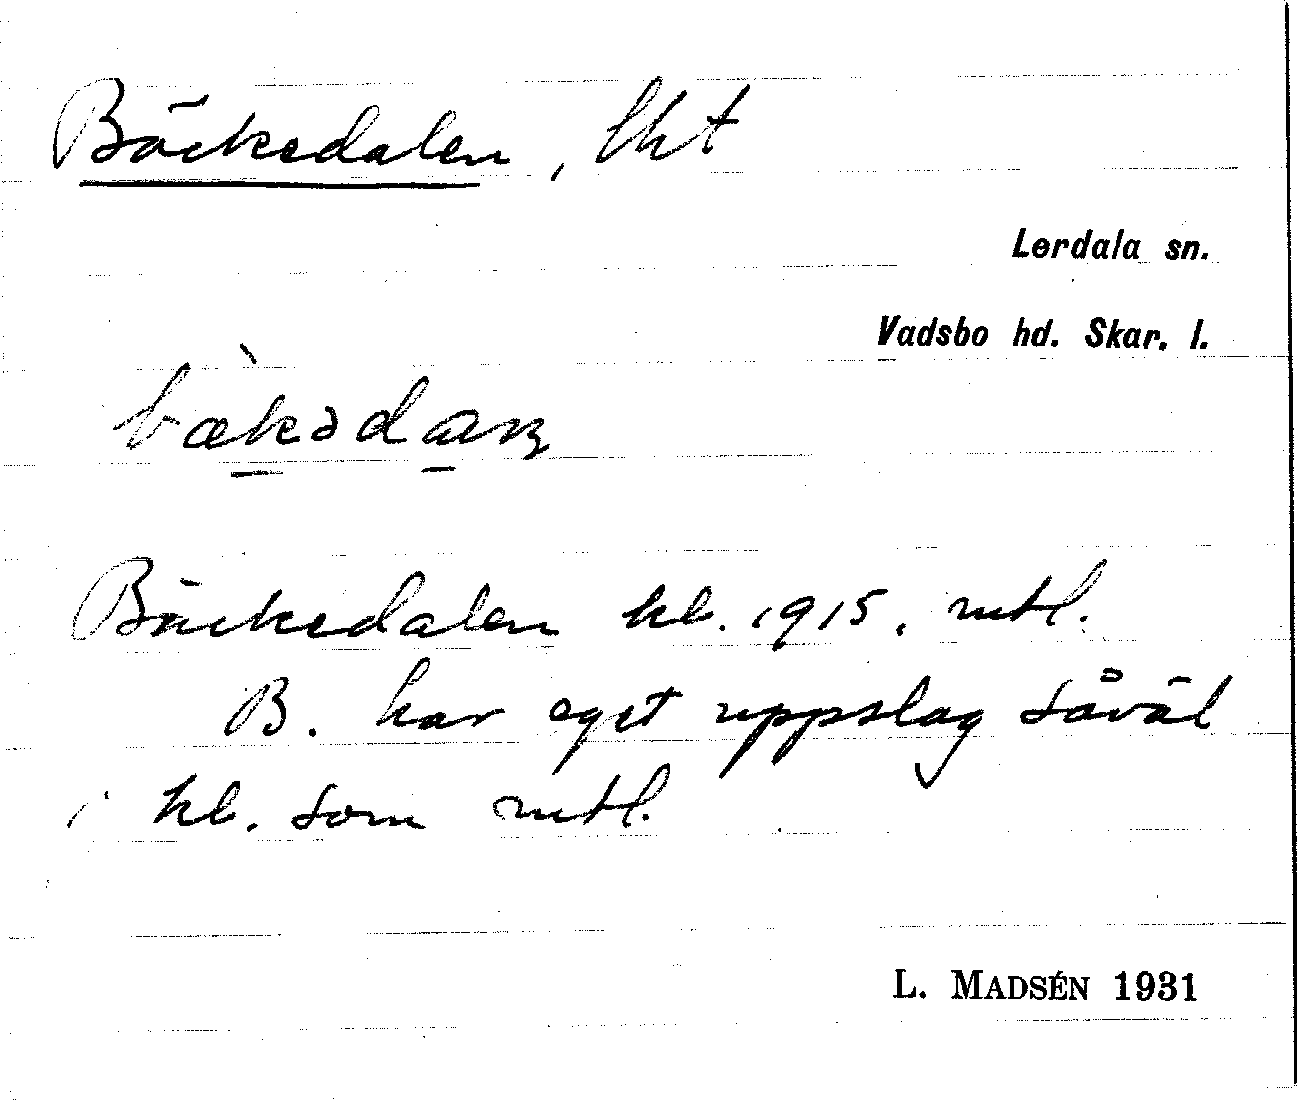 Bäckedalen, lht
Lerdala sn.
Vadsbo hd. Skar. l.
bæ̀kədaɳ
Bäckedalen kb. 1915, mtl.
B. har eget uppslag såväl
i kb. som mtl.
L. MADSÉN 1931